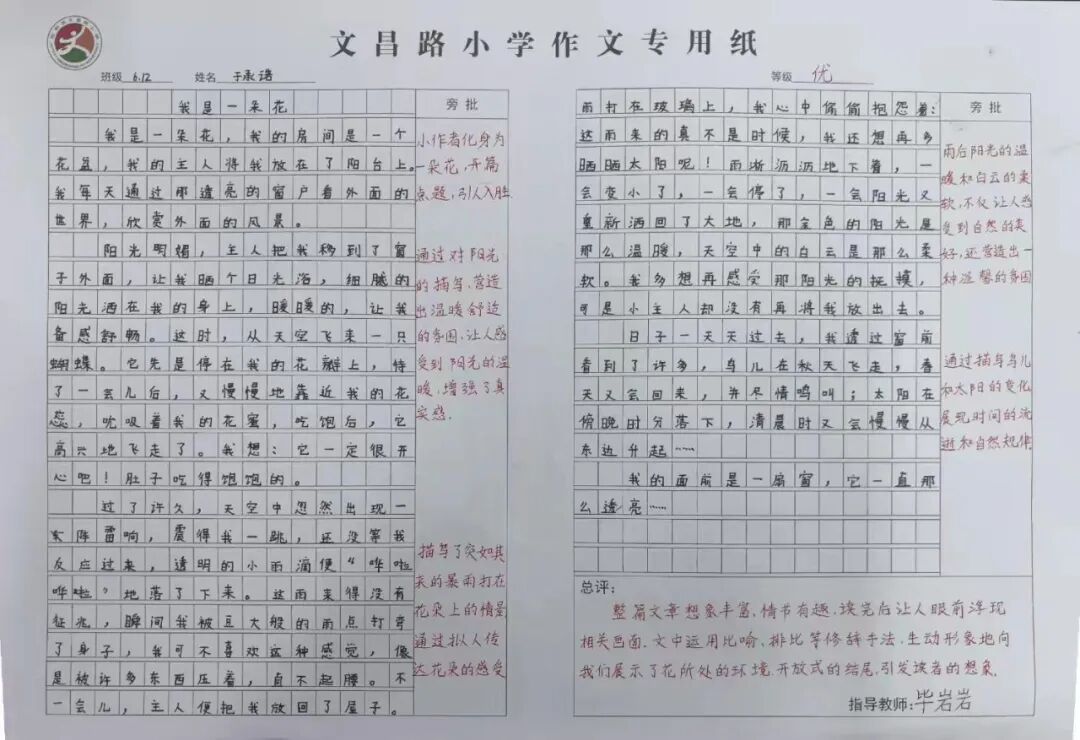 文昌路小学作文专用纸
班级 6.12 姓名 于承诺 等级 优
我是一朵花
旁批
我是一朵花，我的房间是一个
花盆，我的主人将我放在了阳台上。
我每天通过那透亮的窗户看外面的
世界，欣赏外面的风景。
小作者化身为
一朵花，开篇
点题，引人入胜
阳光明媚，主人把我移到了窗
子外面，让我晒个日光浴，细腻的
阳光洒在我的身上，暖暖的，让我
备感舒畅。这时，从天空飞来一只
蝴蝶。它先是停在我的花瓣上，待
了一会儿后，又慢慢地靠近我的花
蕊，吮吸着我的花蜜，吃饱后，它
高兴地飞走了。我想：它一定很开
心吧！肚子吃得饱饱的。
通过对阳光
的描写，营造
出温暖舒适
的氛围，让人感
受到阳光的温
暖，增强了真
实感。
过了许久，天空中忽然出现一
阵雷响，震得我一跳，还没等我
反应过来，透明的小雨滴便“哗啦
哗啦”地落了下来。这雨来得没有
征兆，瞬间我被豆大般的雨点打弯
了身子，我可不喜欢这种感觉，像
是被许多东西压着，直不起腰。不
一会儿，主人便把我放回了屋子。
描写了突如其
来的暴雨打在
花朵上的情景
通过拟人传
达花朵的感受
旁批
雨打在玻璃上，我心中偷偷抱怨着：
这雨来的真不是时候，我还想再多
晒晒太阳呢！雨淅沥沥地下着，一
会变小了，一会停了，一会阳光又
重新洒回了大地，那金色的阳光是
那么温暖，天空中的白云是那么柔
软。我多想再感受那阳光的抚摸，
可是小主人却没有再将我放出去。
雨后阳光的温
暖和白云的柔
软，不仅让人感
受到自然的美
好，还营造出一
种温馨的氛围
日子一天天过去，我透过窗前
看到了许多，鸟儿在秋天飞走，春
天又会回来，并尽情鸣叫；太阳在
傍晚时分落下，清晨时又会慢慢从
东边升起……
通过描写鸟儿
和太阳的变化
展现时间的流
逝和自然规律
我的面前是一扇窗，它一直那
么透亮……
总评：
整篇文章想象丰富，情书有趣，读完后让人眼前浮现
相关画面。文中运用比喻、排比等修辞手法，生动形象地向
我们展示了花所处的环境，开放式的结尾，引发读者的想象。
指导教师：毕岩岩